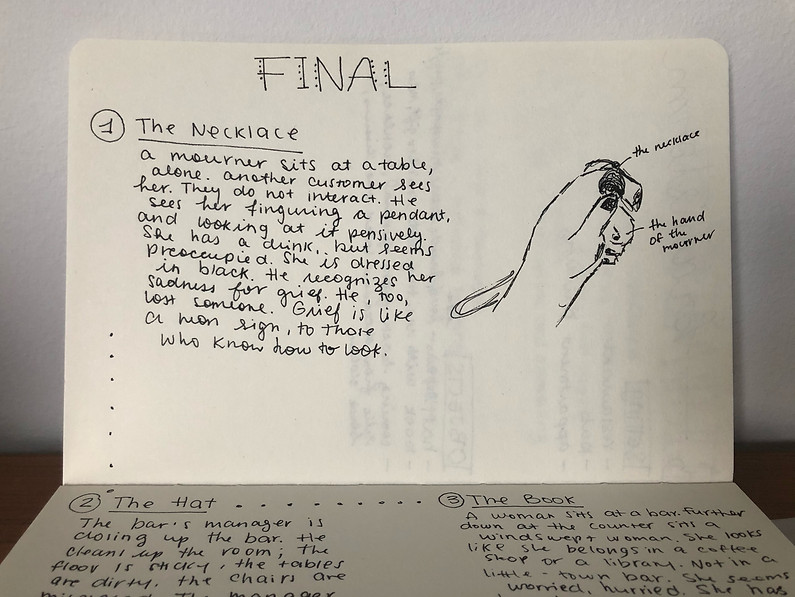 FINAL
1 The Necklace
a mourner sits at a table,
alone. another customer sees
her. They do not interact. He
sees her finguring a pendant,
and looking at it pensively.
She has a drink, but seems
preoccupied. She is dressed
in black. He recognizes her
sadness for grief. He, too,
lost someone. Grief is like
a neon sign, to those
who know how to look.
the necklace
the hand
of the
mourner
2 The Hat
The bar's manager is
closing up the bar. He
cleans up the room; the
floor is sticky, the tables
are dirty, the chairs are
The manager
3 The Book
A woman sits at a bar. Further
down at the counter sits a
windswept woman. She looks
like she belongs in a coffee
shop or a library. Not in a
little-town bar. She seems
worried, hurried. She has